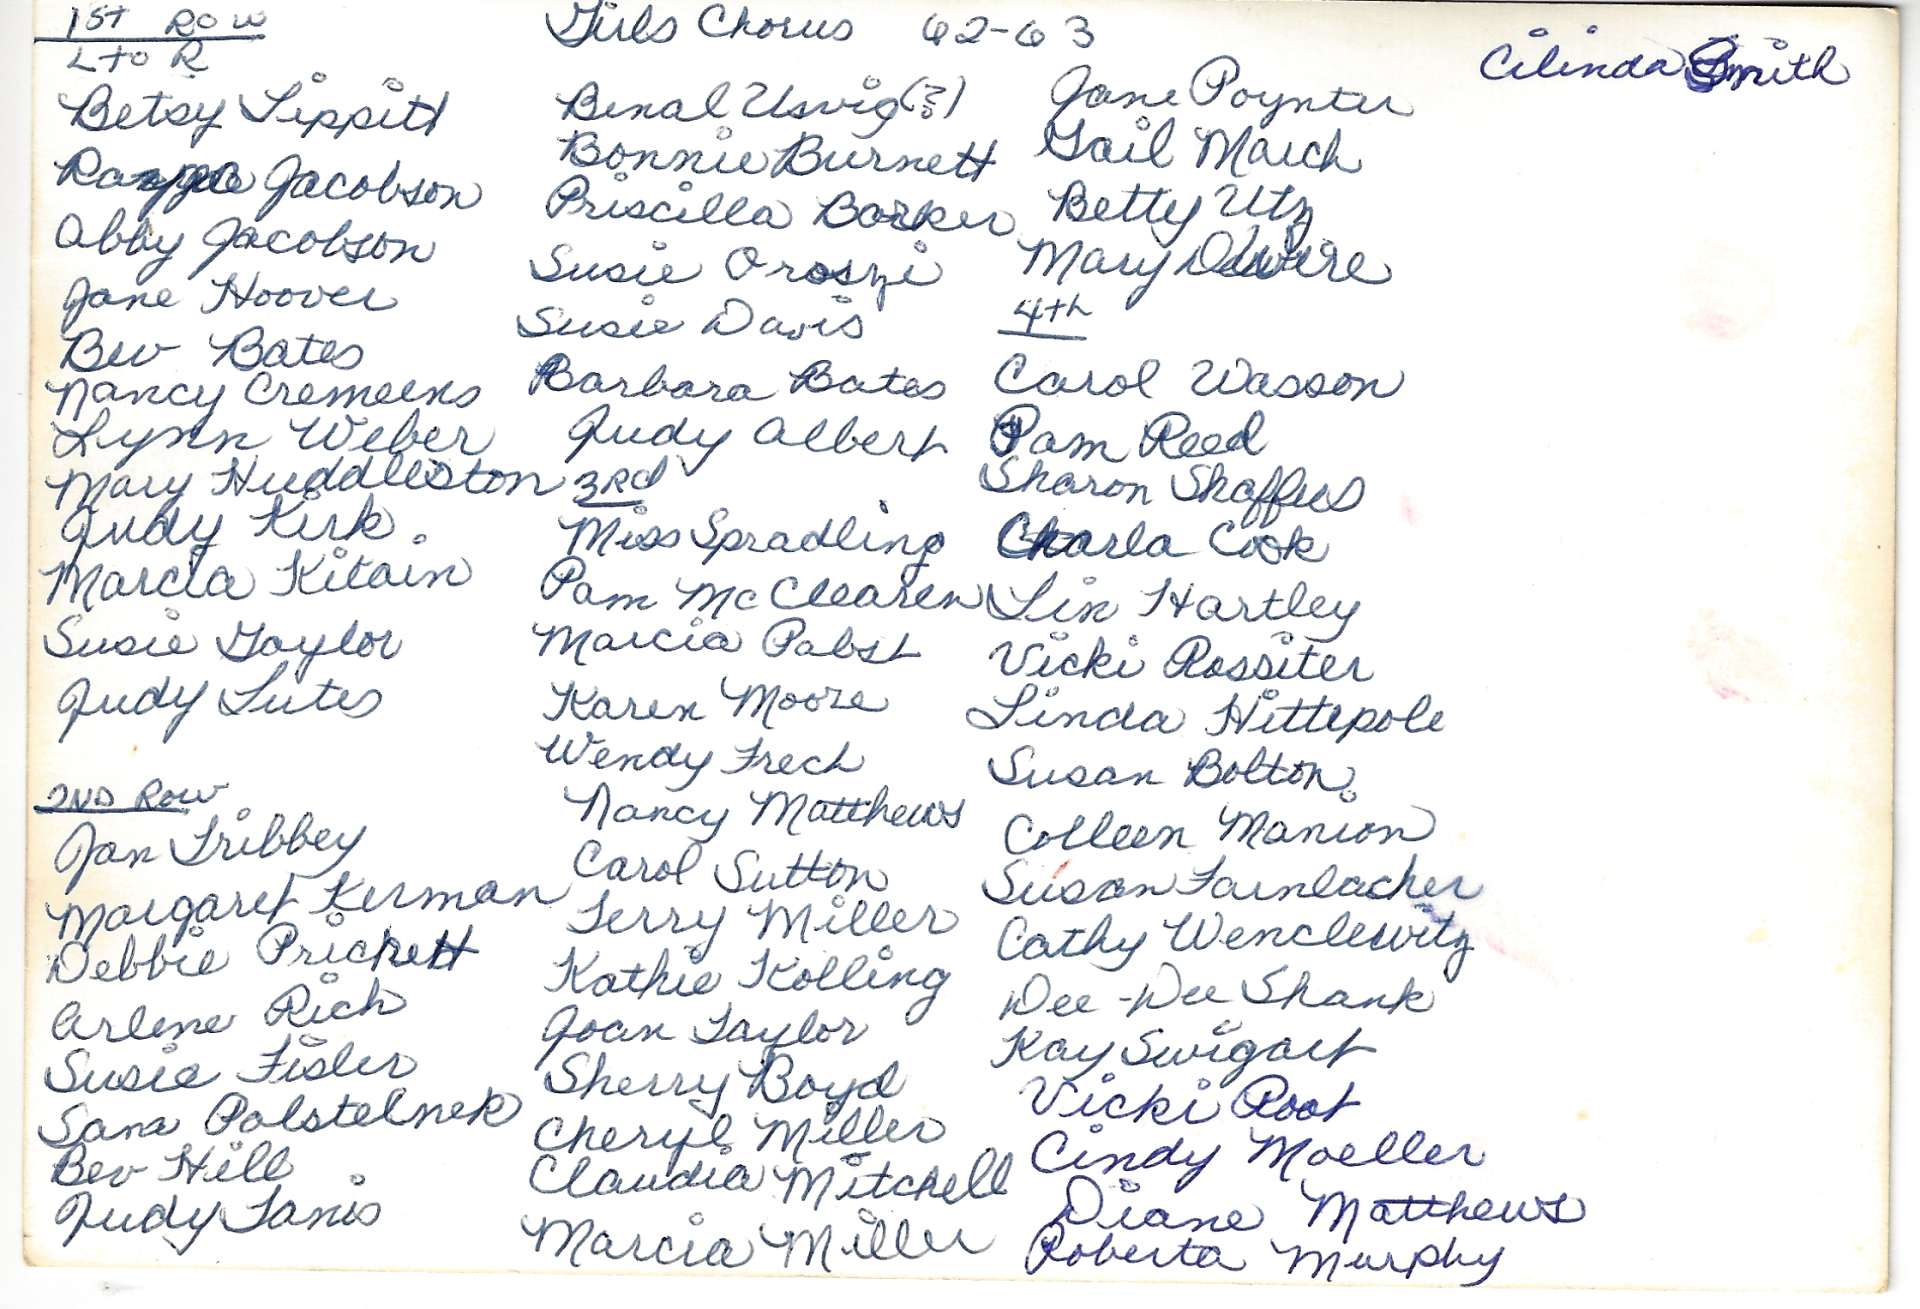 Girls Chorus 62-63
1ST ROW
L to R
Betsy Lippitt
Jacobson
Abby Jacobson
Jane Hoover
Bev Bates
Nancy Cremeens
Lynn Weber
Mary Huddleston
Judy Kirk
Marcia Kitain
Susie Gaylor
Judy Lutes
2ND ROW
Jan Tribbey
Margaret Kerman
Debbie Prickett
Arlene Rich
Susie Fisler
Sana Polstelnek
Bev Hill
Judy Janis
Benal Usvig(?)
Bonnie Burnett
Priscilla Barker
Susie Oroszi
Susie Davis
Barbara Bates
Judy Albert
3RD
Miss Spradling
Pam McClearen
Marcia Pabst
Karen Moore
Wendy Frech
Nancy Matthews
Carol Sutton
Terry Miller
Kathie Kolling
Joan Taylor
Sherry Boyd
Cheryl Miller
Claudia Mitchell
Marcia Miller
Jane Poynter
Gail March
Betty Utz
Mary Dewire
4th
Carol Wasson
Pam Reed
Sharon Shaffus
Charla Cook
Lin Hartley
Vicki Rossiter
Linda Hittepole
Susan Bolton
Colleen Manion
Susan Farnlacher
Cathy Wenclewitz
Dee-Dee Shank
Kay Swigart
Vicki Root
Cindy Moeller
Diane Matthews
Roberta Murphy
Cilinda Smith